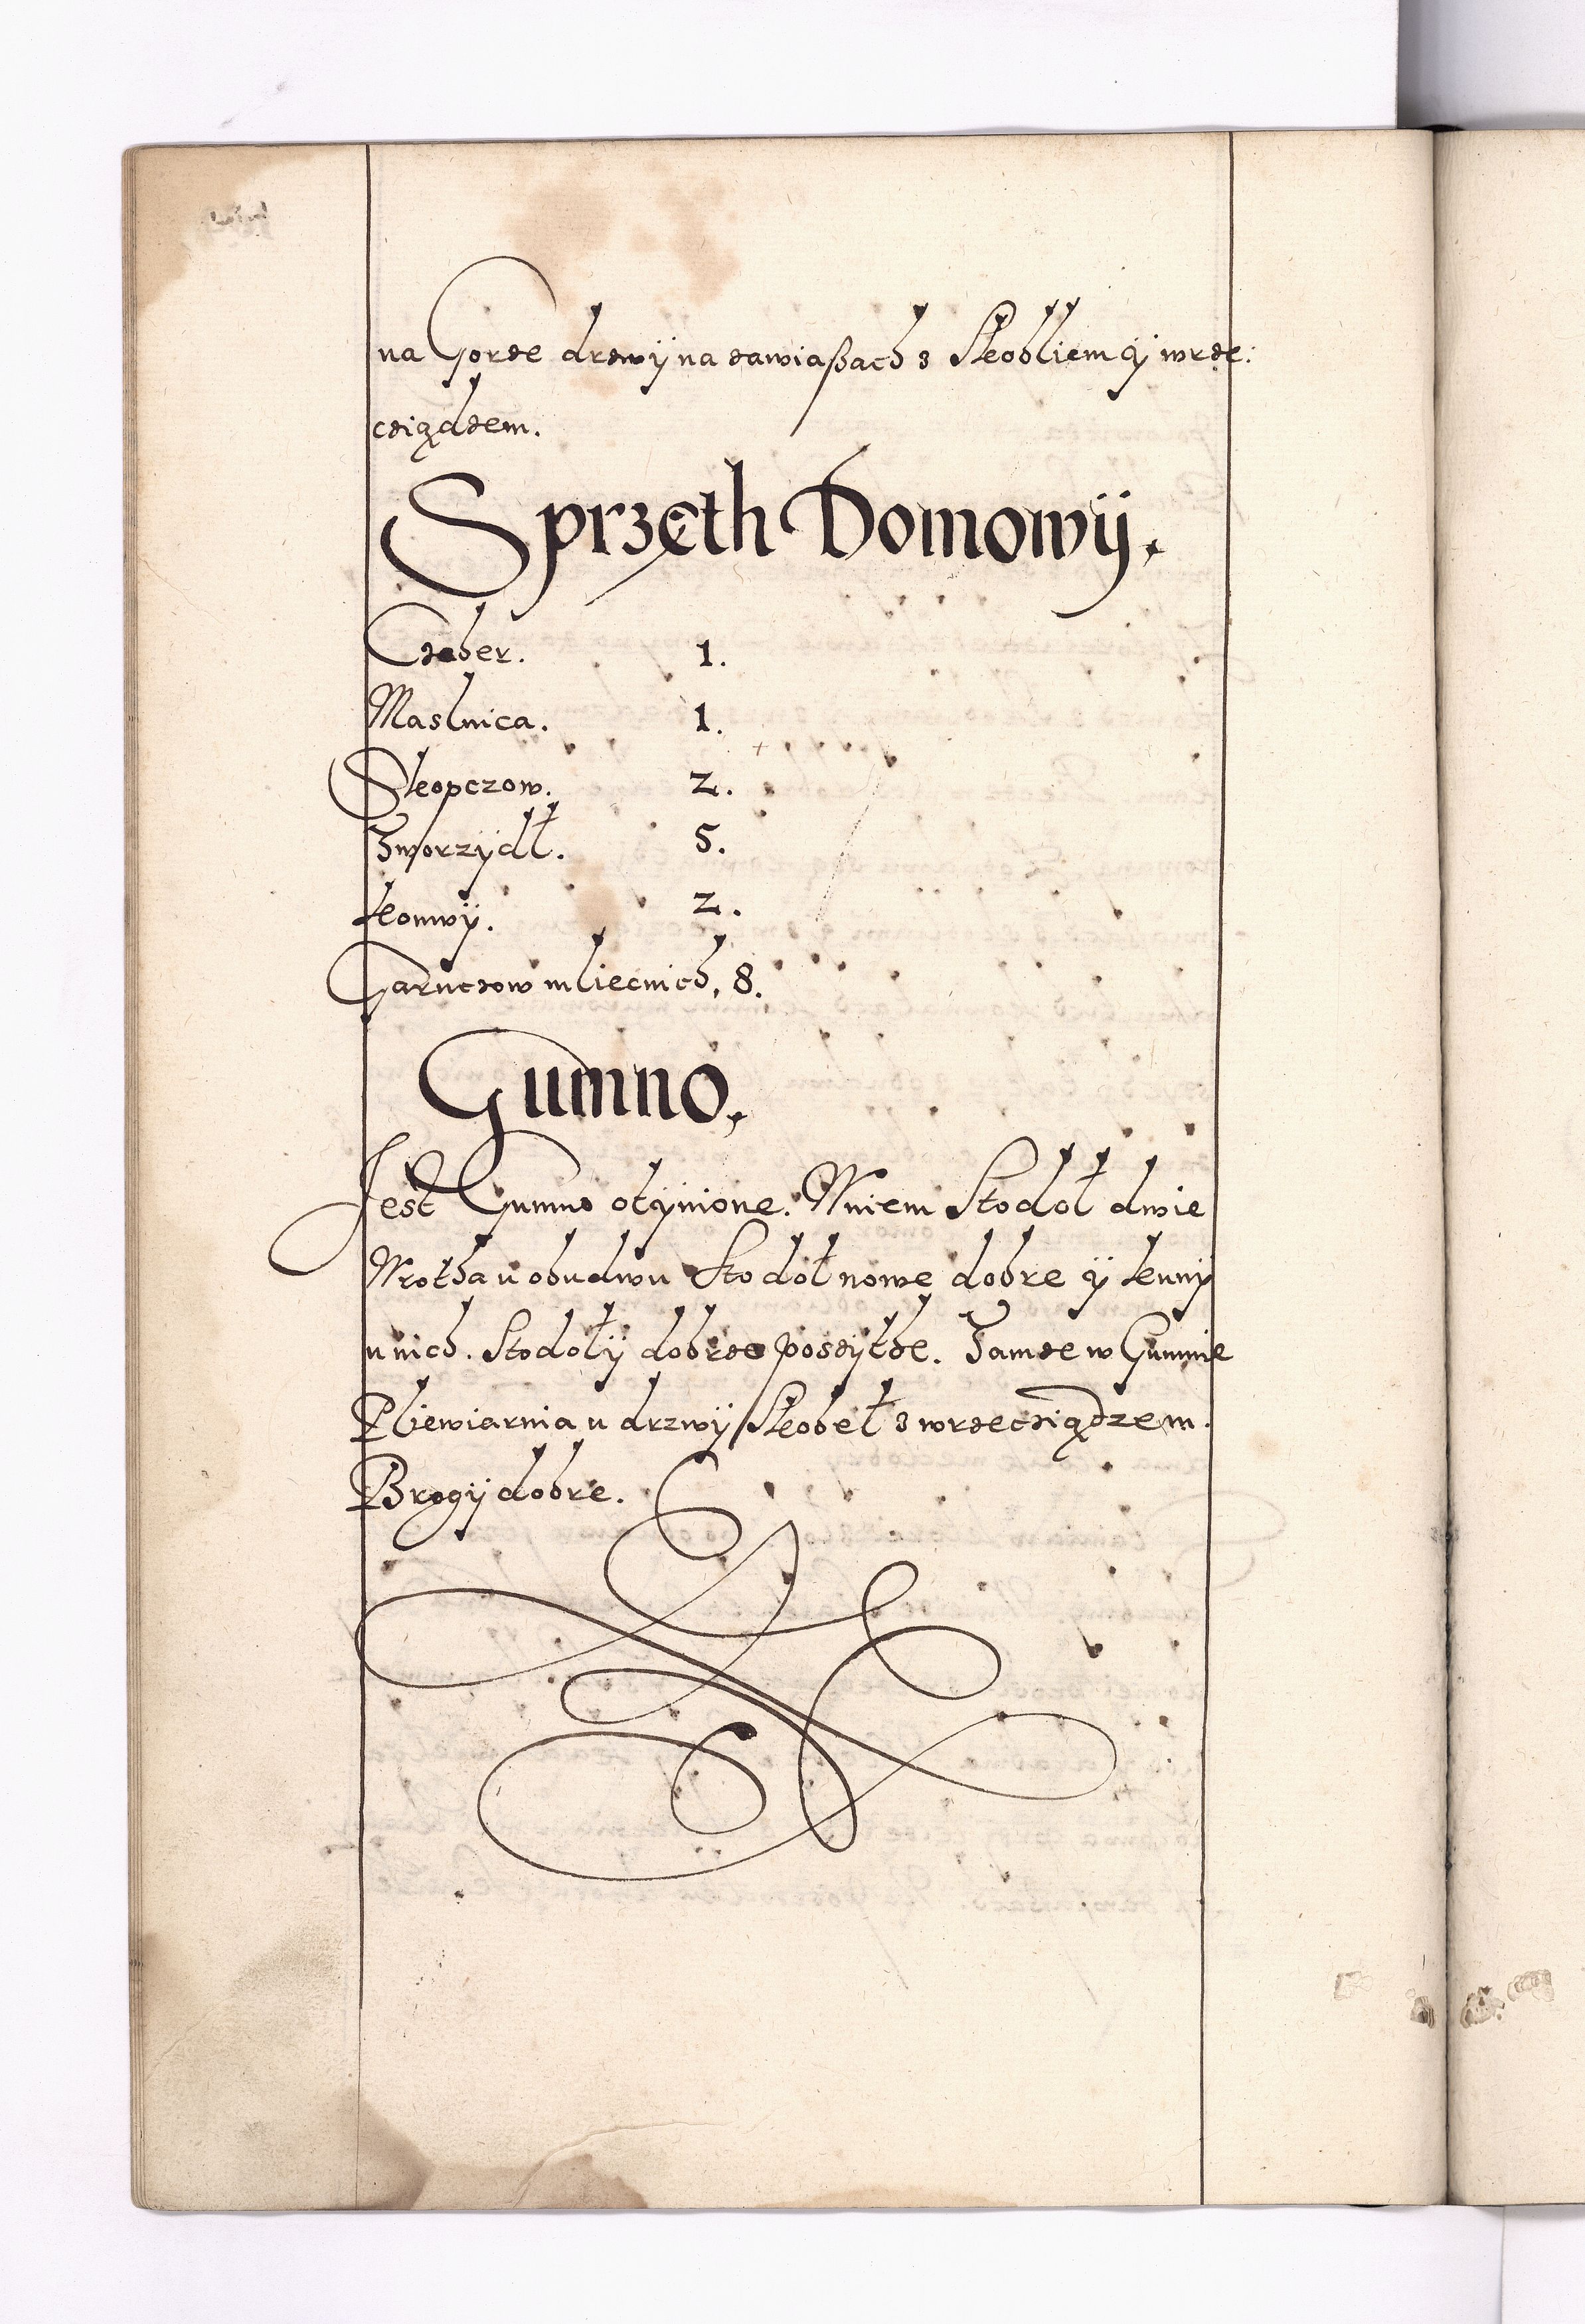 na Gorze drzwÿ na zawiaßach z Skobliem ÿ wrze:
cziądzem.
Sprzęth Domowÿ.
Czeber. 1.
Maslnica. 1.
Skopczow. 2.
Tworzÿdł. 5.
Konwÿ. 2.
Garnczow mliecnich, 8.
Gumno,
Jest Gumno otÿnione. Wniem Stodoł dwie
Wrotha u obudwu Stodoł nowe dobre ÿ kunÿ
u nich. Stodołÿ dobrze poszÿthe. Tamze w Gumnie
Pliewiarnia u drzwÿ Skobel z wrzecziądzem.
Brogÿ dobre.